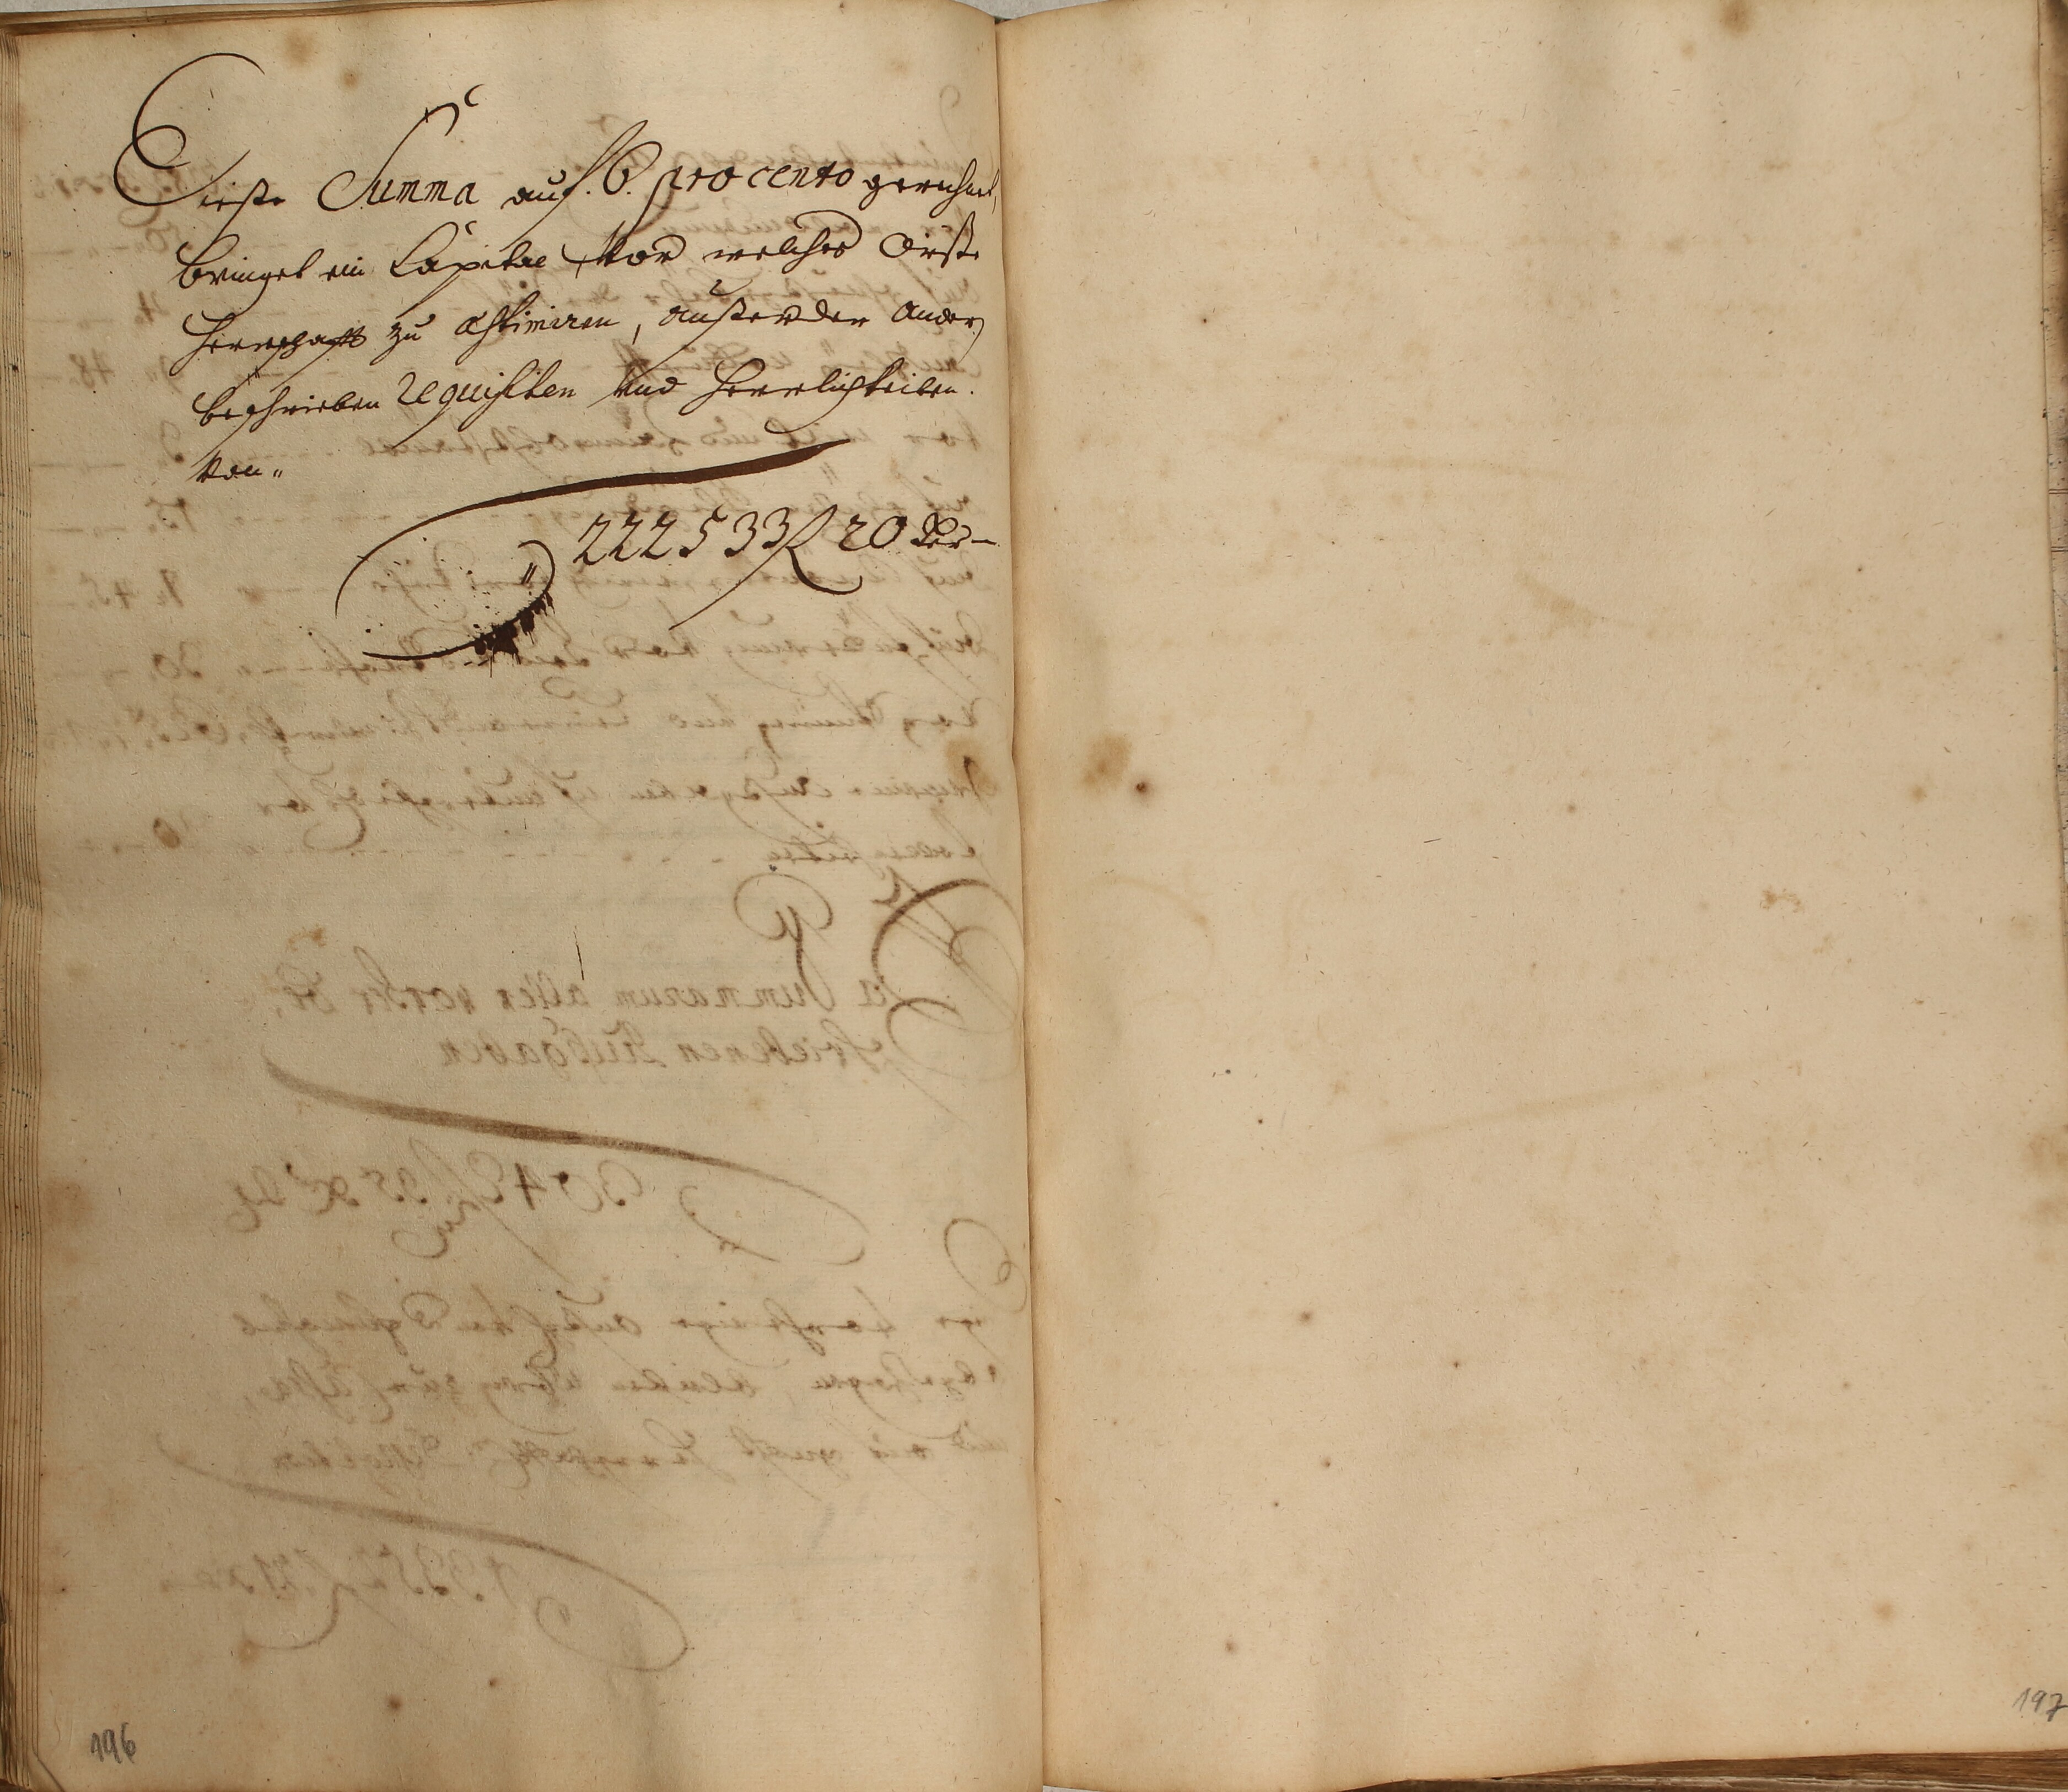 Dieße Summa auf. 6. pro cento gerechnet,
bringet ein Capital, vor welches dieße
Herrschafft zu æstimiren, außer der ander
beschrieben Requisiten und Herrlichkeiten.
von„
222533 f 20 Xer
196
197